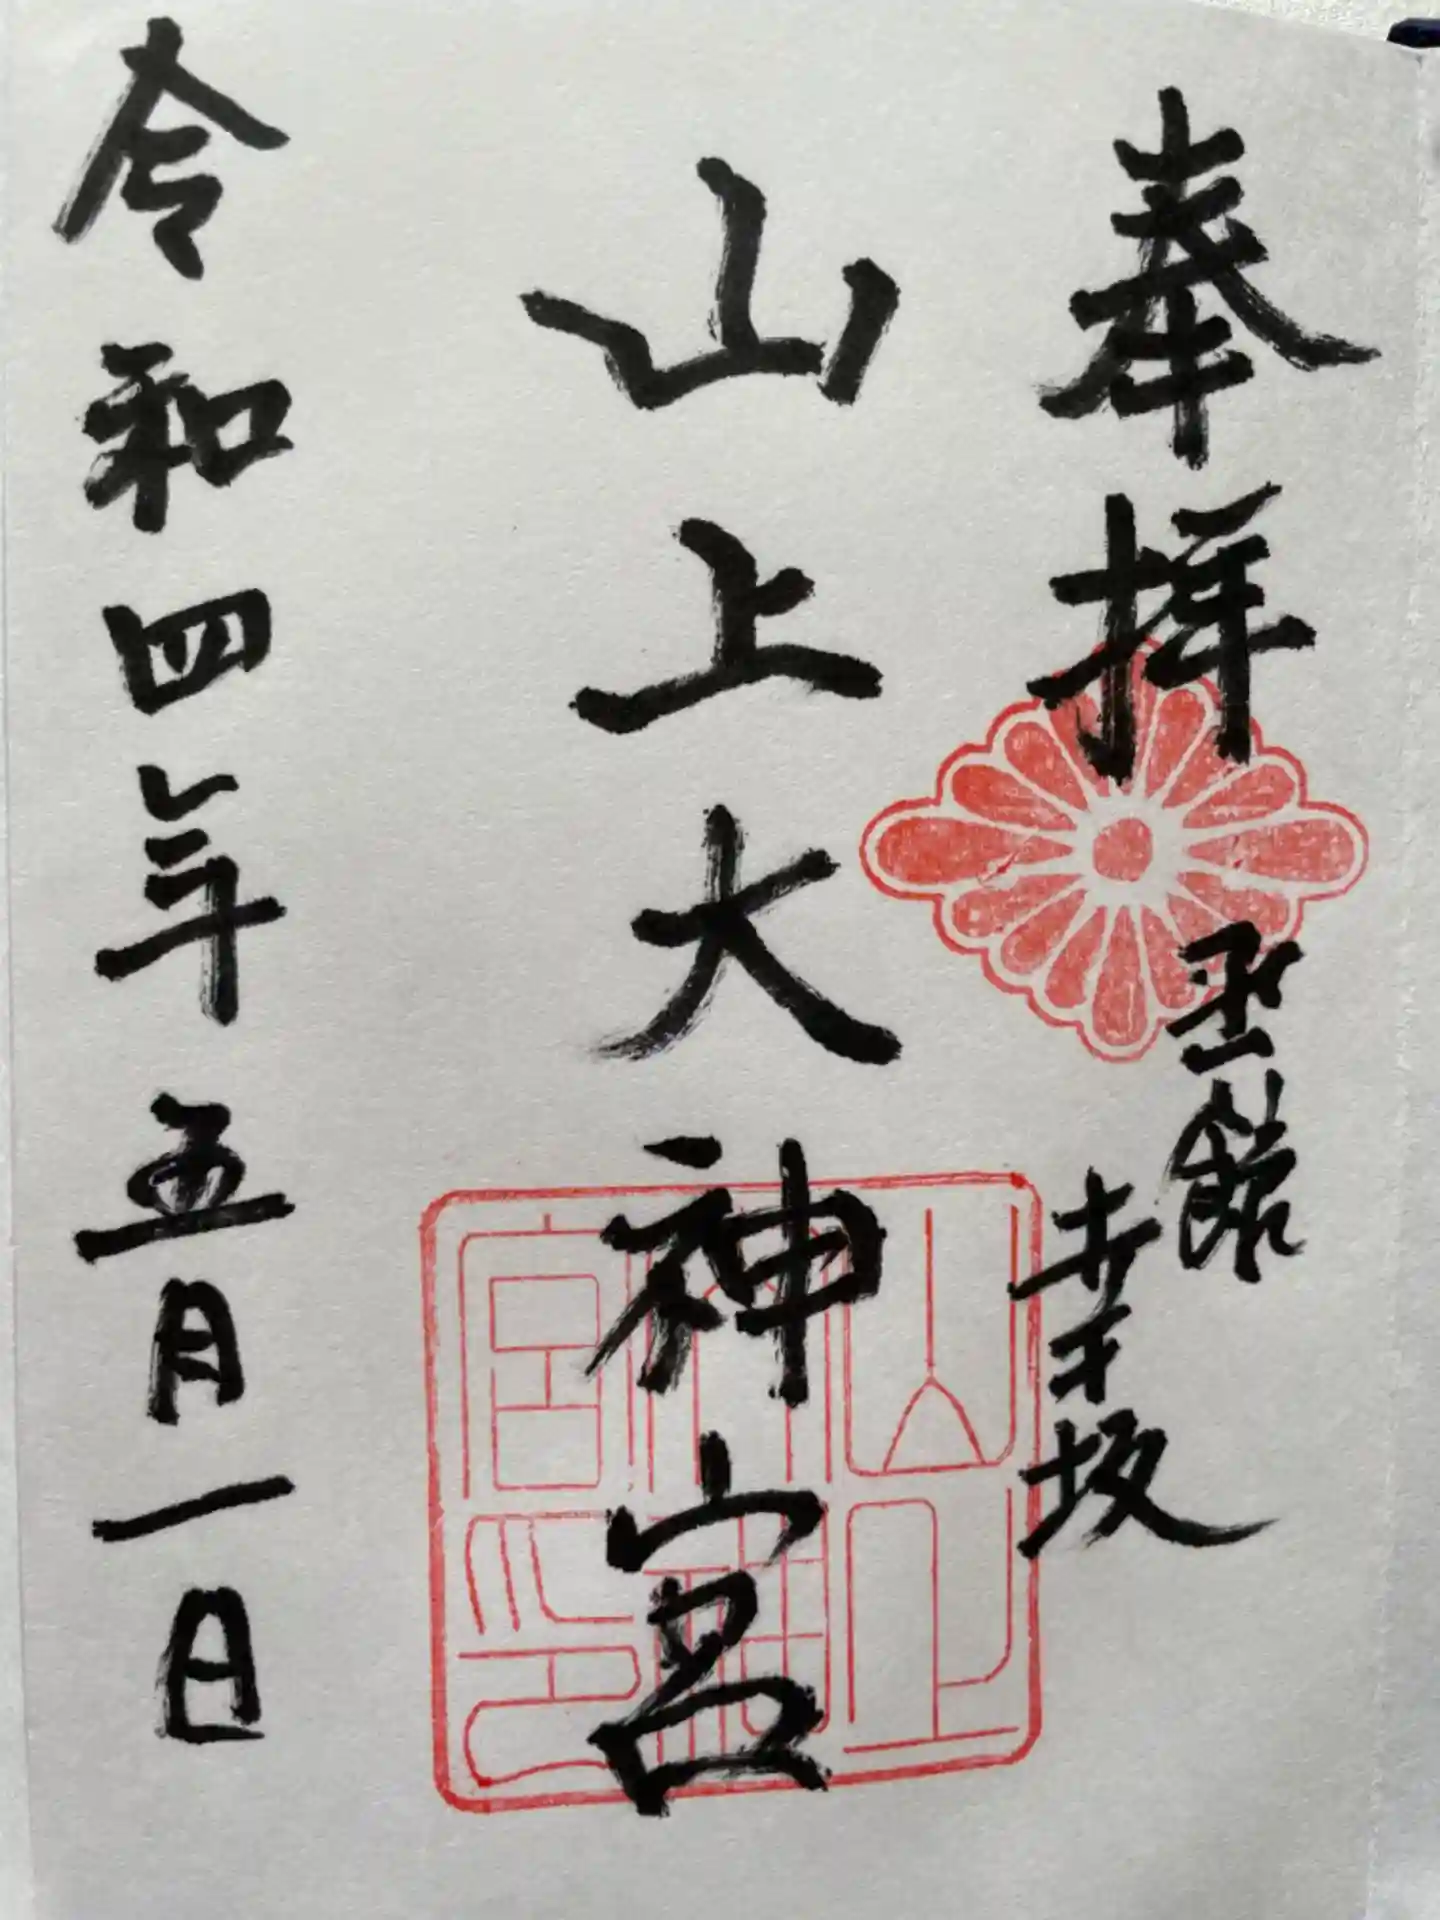 奉拝
函館
幸坂
山上大神宮
令和四年五月一日
山上大神宮印